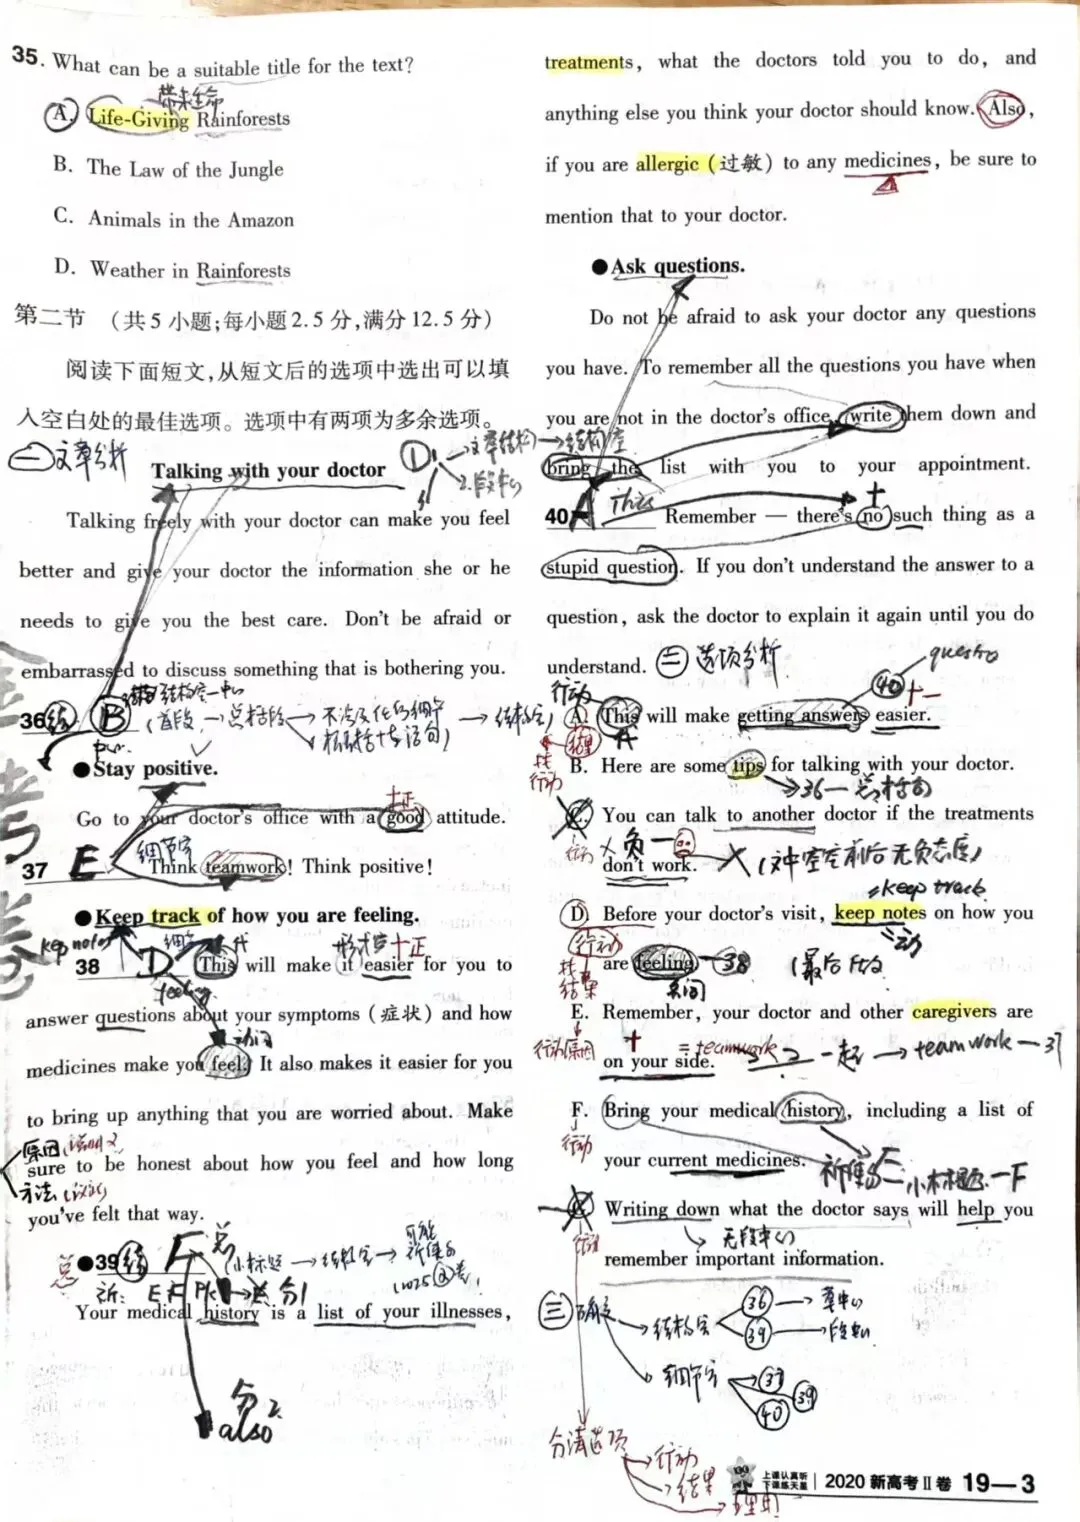 35. What can be a suitable title for the text?
带来生命
A. Life-Giving Rainforests
B. The Law of the Jungle
C. Animals in the Amazon
D. Weather in Rainforests
第二节 (共5小题;每小题2.5分,满分12.5分)
阅读下面短文,从短文后的选项中选出可以填
入空白处的最佳选项。选项中有两项为多余选项。
一 文章分析
Talking with your doctor
1. 文章结构→结构空
2. 段中心
Talking freely with your doctor can make you feel
better and give your doctor the information she or he
needs to give you the best care. Don't be afraid or
embarrassed to discuss something that is bothering you.
36 B
●Stay positive.
十正
Go to your doctor's office with a good attitude.
细节空
37 E Think teamwork! Think positive!
●Keep track of how you are feeling.
keep notes
形式空十正
38 D This will make it easier for you to
feeling
answer questions about your symptoms (症状) and how
动词
medicines make you feel. It also makes it easier for you
to bring up anything that you are worried about. Make
原因
sure to be honest about how you feel and how long
方法
you've felt that way.
总 ●39 F 小标题→结构空→
Your medical history is a list of your illnesses,
分2
also
treatments, what the doctors told you to do, and
anything else you think your doctor should know. Also,
if you are allergic (过敏) to any medicines, be sure to
mention that to your doctor.
●Ask questions.
Do not be afraid to ask your doctor any questions
you have. To remember all the questions you have when
you are not in the doctor's office, write them down and
bring the list with you to your appointment.
This +
40 A Remember — there's no such thing as a
stupid question. If you don't understand the answer to a
question, ask the doctor to explain it again until you do
understand. 二 选项分析
行动 40
A. This will make getting answers easier.
B. Here are some tips for talking with your doctor.
行动 36一总括句
C. You can talk to another doctor if the treatments
行动 × 负一
don't work. × (文中空空前后无负态度)
=keep track
D. Before your doctor's visit, keep notes on how you
行动
are feeling 38
结果
E. Remember, your doctor and other caregivers are
行动原因 + =teamwork 一起→teamwork—37
on your side.
F. Bring your medical history, including a list of
行动
your current medicines. 祈使句 小标题—F
G. Writing down what the doctor says will help you
无段中心
remember important information.
三 确定 →结构空 36→章中心
39→段中心
细节空 37
38
40
分清选项
行动
结果
理由
上课认真听
下课练天星
2020 新高考Ⅱ卷 19—3